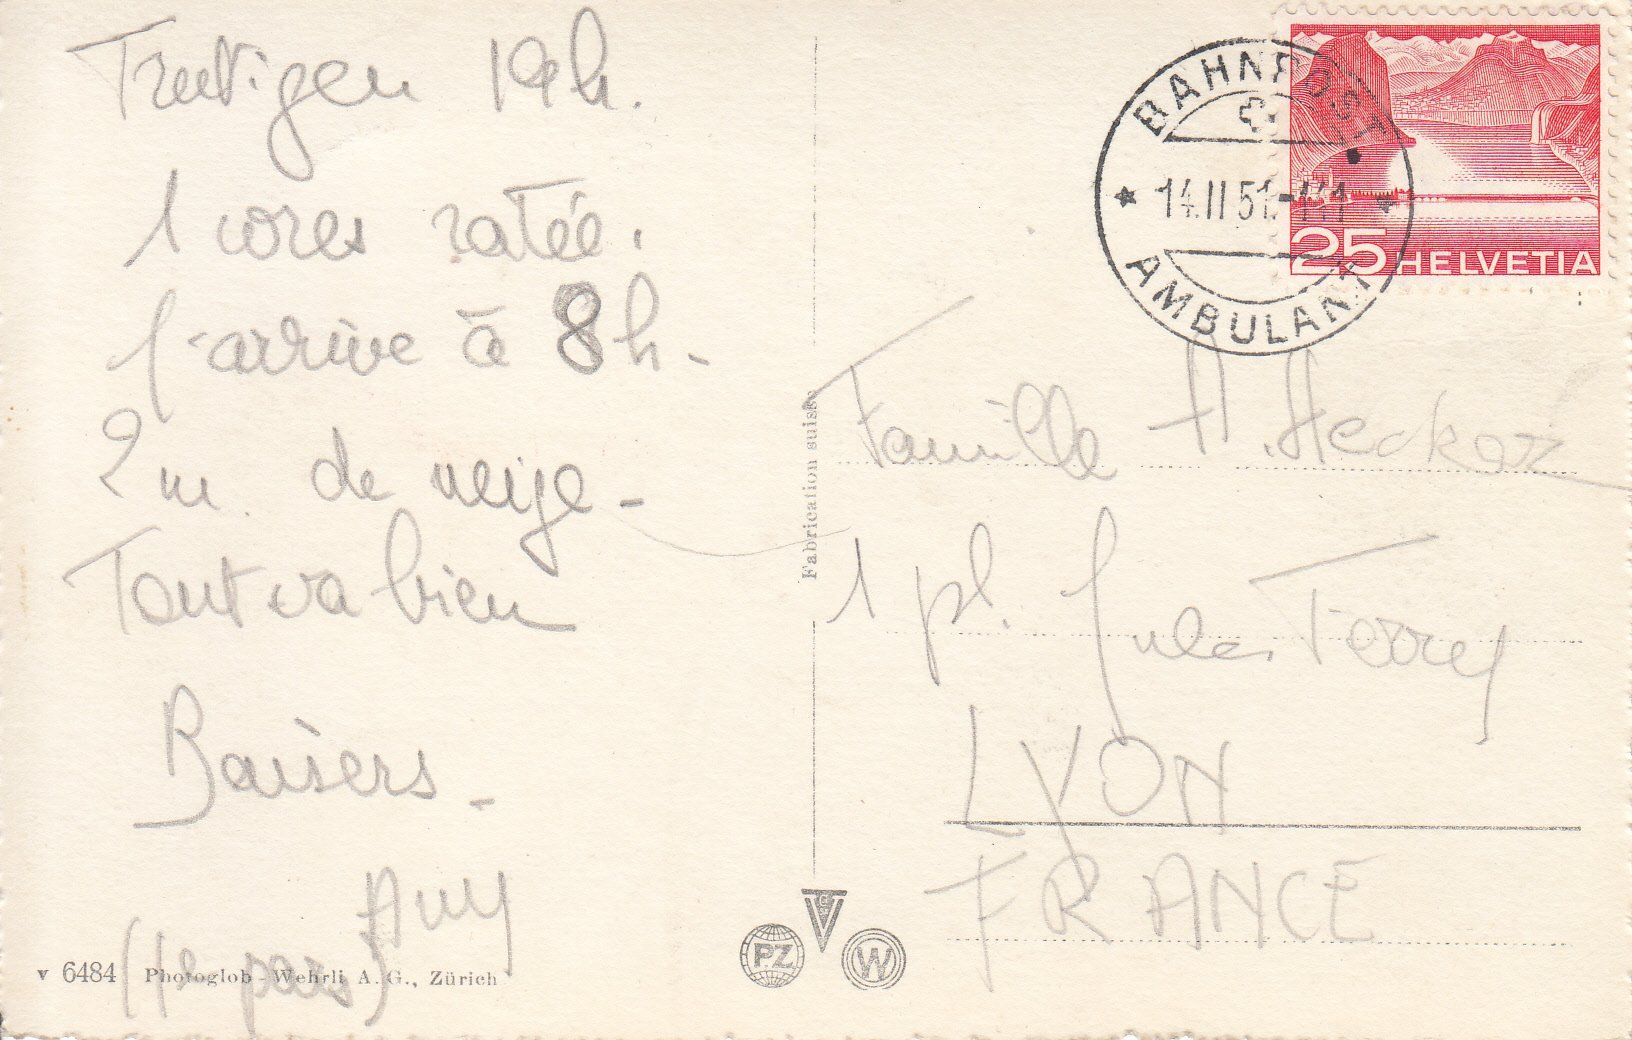 Frutigen 19h.
1 corres ratée.
j'arrive à 8h-
2m. de neige-
Tout va bien
Baisers-
Any
(je pars)
v 6484 Photoglob-Wehrli A.G., Zürich
Fabrication suisse
PZ
W
BAHNPOST
14.II.51.-
AMBULANT
25 HELVETIA
Famille A.
1 pl. Jules Ferry
LYON
FRANCE